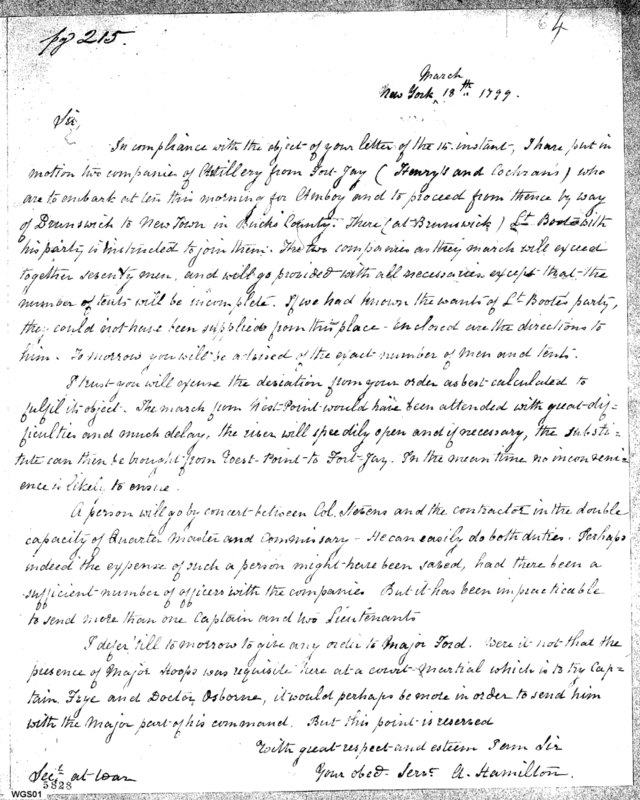 pg 215.
64
New York March 18th 1799.
Sir,
In compliance with the object of your letter of the 15 instant, I have put in
motion two companies of Artillery from Fort-Jay (Henry's and Cochran's) who
are to embark at ten this morning for Amboy and to proceed from thence by way
of Brunswick to New Town in Bucks County. There (at Brunswick) Lt Boote with
his party is instructed to join them. The two companies as they march will exceed
together seventy men, and will go provided with all necessaries except that the
number of tents will be incomplete. If we had known the wants of Lt Boote's party,
they could not have been supplied from this place - Enclosed are the directions to
him. To morrow you will be advised of the exact number of men and tents.
I trust you will excuse the deviation from your order as best calculated to
fulfil its object. The march from West-Point would have been attended with great dif-
ficulties and much delay, the river will speedily open and if necessary, the substi-
tute can then be brought from West-Point to Fort-Jay. In the mean time no inconveni-
ence is likely to ensue.
A person will go by concert between Col. Stevens and the contractor in the double
capacity of Quarter Master and Commissary - He can easily do both duties. Perhaps
indeed the expense of such a person might have been saved, had there been a
sufficient number of officers with the companies But it has been impracticable
to send more than one Captain and two Lieutenants
I defer 'till to morrow to give any order to Major Ford. Were it not that the
presence of Major Hoops was requisite here at a court-martial which is to try Cap-
tain Frye and Doctor Osborne, it would perhaps be more in order to send him
with the Major part of his command. But this point is reserved
With great respect and esteem I am Sir
Your obed. Servt. A. Hamilton.
Secy. at War
5828
WGS01